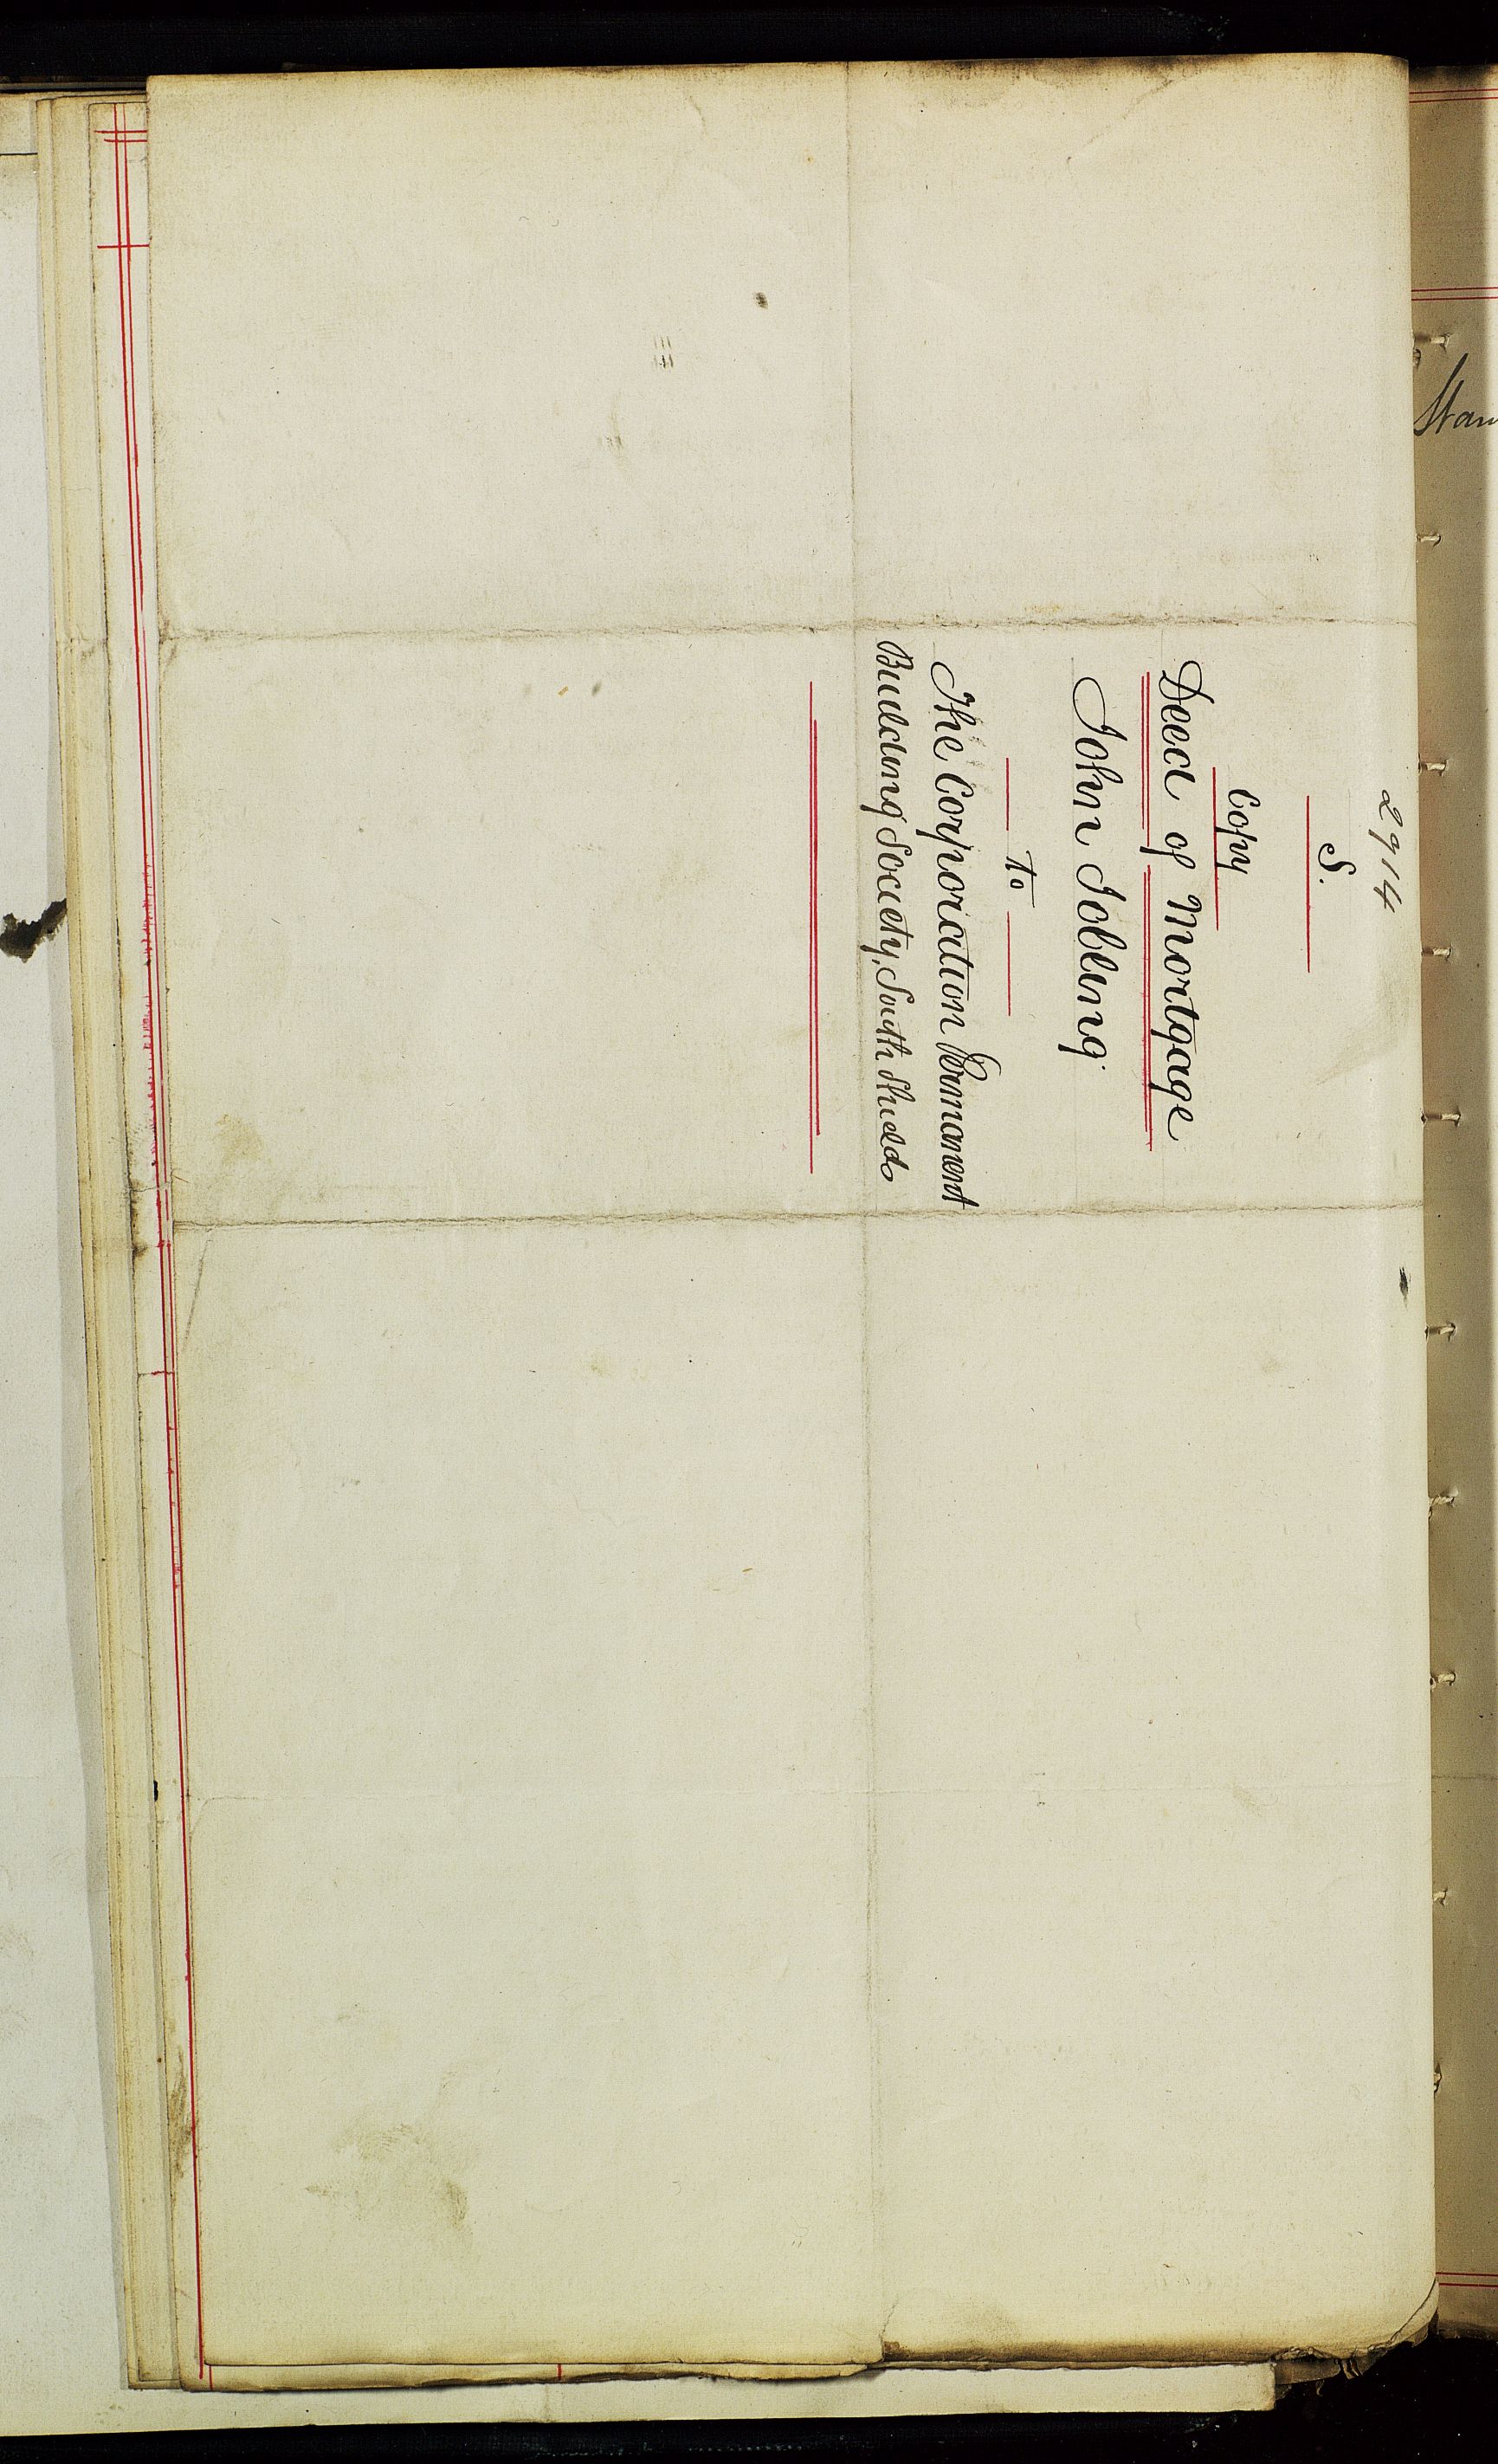 2914
S.
Copy
Deed of Mortgage
John Jobling
to
The Corporation Permanent
Building Society, South Shields